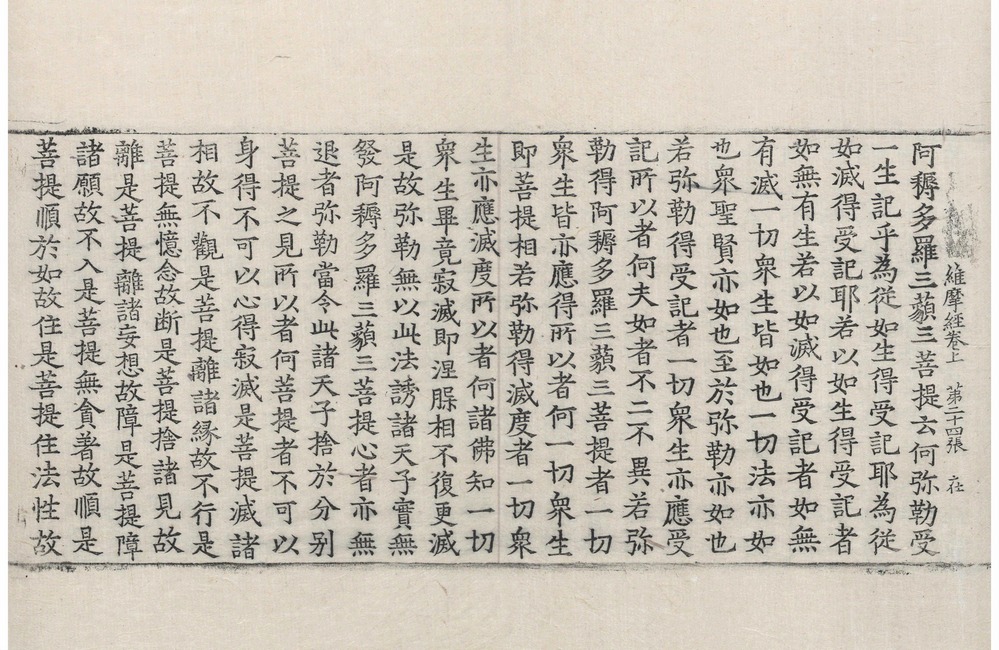 維摩經卷上　第二十四張　在
阿耨多羅三藐三菩提云何弥勒受
一生記乎為從如生得受記耶為從
如滅得受記耶若以如生得受記者
如無有生若以如滅得受記者如無
有滅一切衆生皆如也一切法亦如
也衆聖賢亦如也至於弥勒亦如也
若弥勒得受記者一切衆生亦應受
記所以者何夫如者不二不異若弥
勒得阿耨多羅三藐三菩提者一切
衆生皆亦應得所以者何一切衆生
即菩提相若弥勒得滅度者一切衆
生亦應滅度所以者何諸佛知一切
衆生畢竟寂滅即涅槃相不復更滅
是故弥勒無以此法誘諸天子實無
發阿耨多羅三藐三菩提心者亦無
退者弥勒當令此諸天子捨於分别
菩提之見所以者何菩提者不可以
身得不可以心得寂滅是菩提滅諸
相故不觀是菩提離諸緣故不行是
菩提無憶念故断是菩提捨諸見故
離是菩提離諸妄想故障是菩提障
諸願故不入是菩提無貪著故順是
菩提順於如故住是菩提住法性故